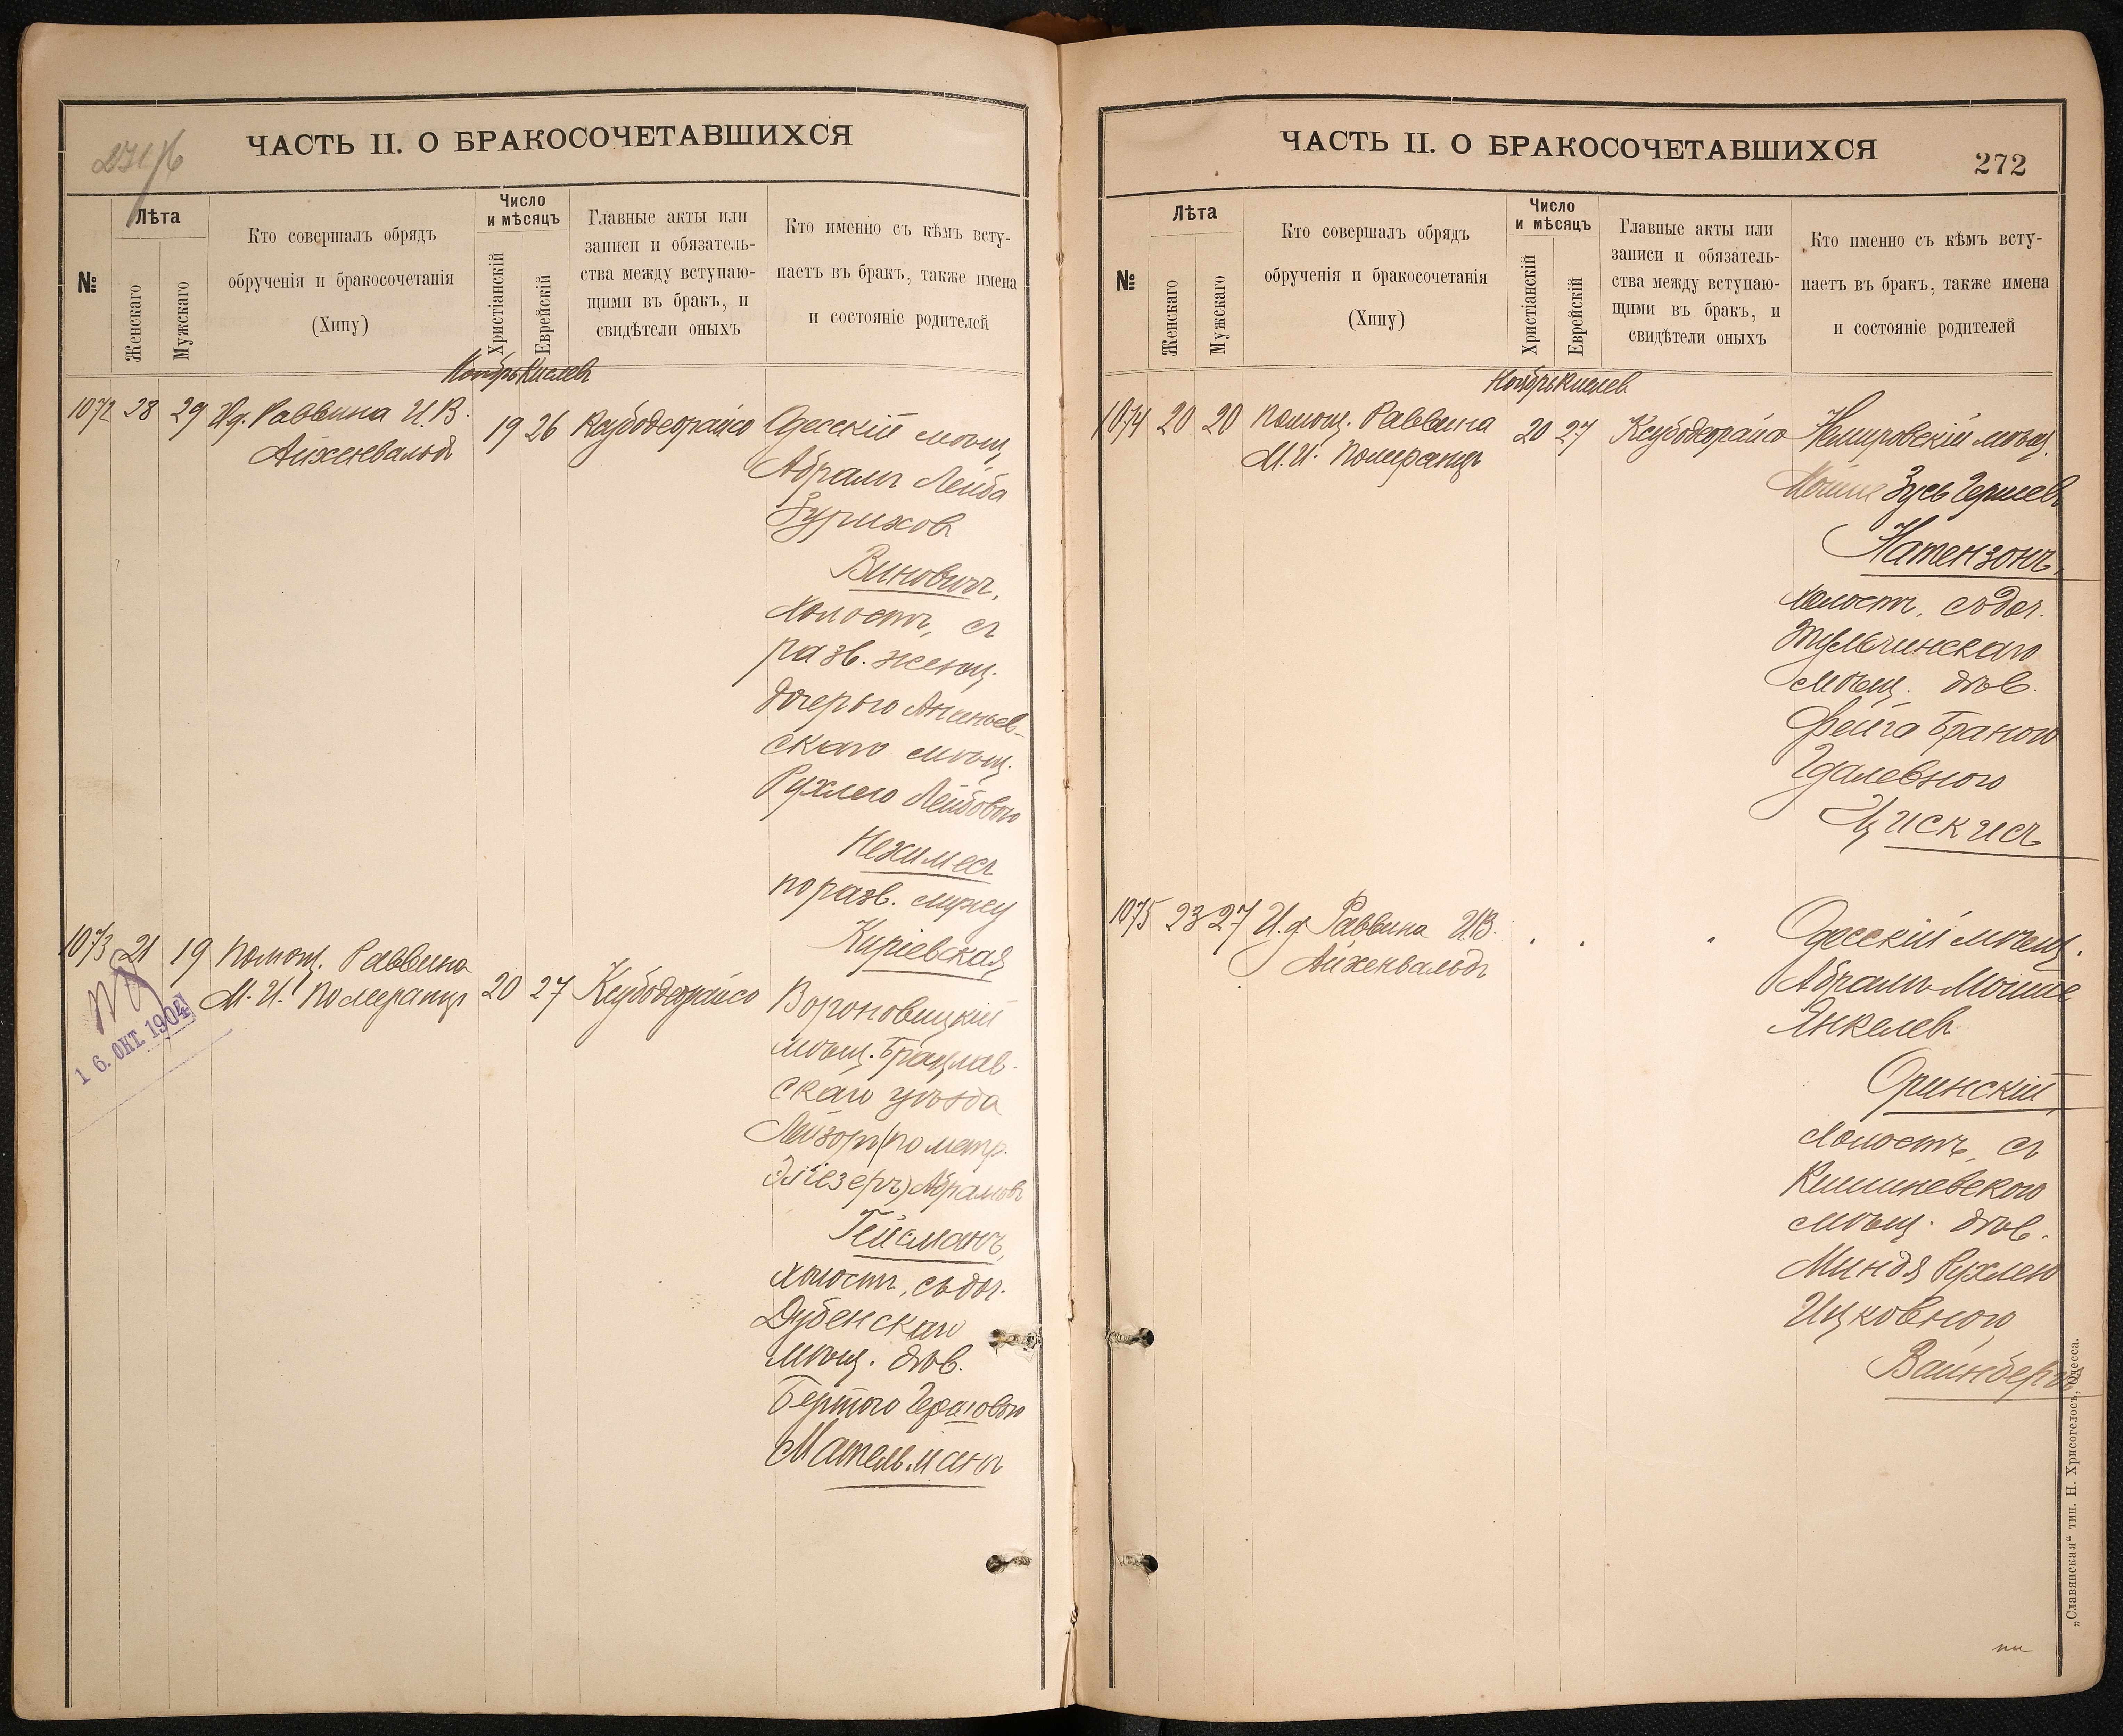 ЧАСТЬ II. О БРАКОСОЧЕТАВШИХСЯ
№
Лѣта
Женскаго
Мужскаго
Кто совершалъ обрядъ
обрученія и бракосочетанія
(Хипу)
Число
и мѣсяцъ
Христіанскій
Еврейскій
Главные акты или
записи и обязатель-
ства между вступаю-
щими въ бракъ, и
свидѣтели оныхъ
Кто именно съ кѣмъ всту-
паетъ въ бракъ, также имена
и состояніе родителей
Ноябрь Кислевъ
1072 28 29 Ид. Раввина И.В.
Айхенвальдъ
19 26 Ксубодеорайсо
Одесскій мѣщ.
Абрамъ Лейба
Виновичъ,
холостъ, съ
разв. женщ.
дочерью Ананьев-
скаго мѣщ.
Рухлею Лейбовою
Нехимесъ
по разв. мужу
Киріевская
1073 21 19 Помощ. Раввина
М. И. Померанцъ
20 27 Ксубодеорайсо
16. ОКТ. 1904
Вороновицкій
мѣщ. Брацлав-
скаго уѣзда
Лейзоръ (по метр.
Эліезеръ) Абрамовъ
Гейсманъ,
холостъ, съ доч.
Дубенскаго
мѣщ. дѣв.
Мательманъ
ЧАСТЬ II. О БРАКОСОЧЕТАВШИХСЯ
272
№
Лѣта
Женскаго
Мужскаго
Кто совершалъ обрядъ
обрученія и бракосочетанія
(Хипу)
Число
и мѣсяцъ
Христіанскій
Еврейскій
Главные акты или
записи и обязатель-
ства между вступаю-
щими въ бракъ, и
свидѣтели оныхъ
Кто именно съ кѣмъ всту-
паетъ въ бракъ, также имена
и состояніе родителей
Ноябрь Кислев
1074 20 20 Помощ. Раввина
М. И. Померанцъ
20 27 Ксубодеорайсо
Немировскій мѣщ.
Мойше Зусь Гершевъ
Натензонъ,
холостъ, съ доч.
Тульчинскаго
мѣщ. дѣв.
Фейга Браною
Гдалевною
Цискисъ
1075 23 27 И.д. Раввина И.В.
Айхенвальдъ
Одесскій мѣщ.
Абрамъ Мойше
Янкелевъ
Оринскій,
холостъ, съ
Кишиневскою
мѣщ. дѣв.
Миндя Рухлею
Ицковною
Вайнбергъ
„Славянская“ тип. Н. Хрисогелосъ, Одесса.